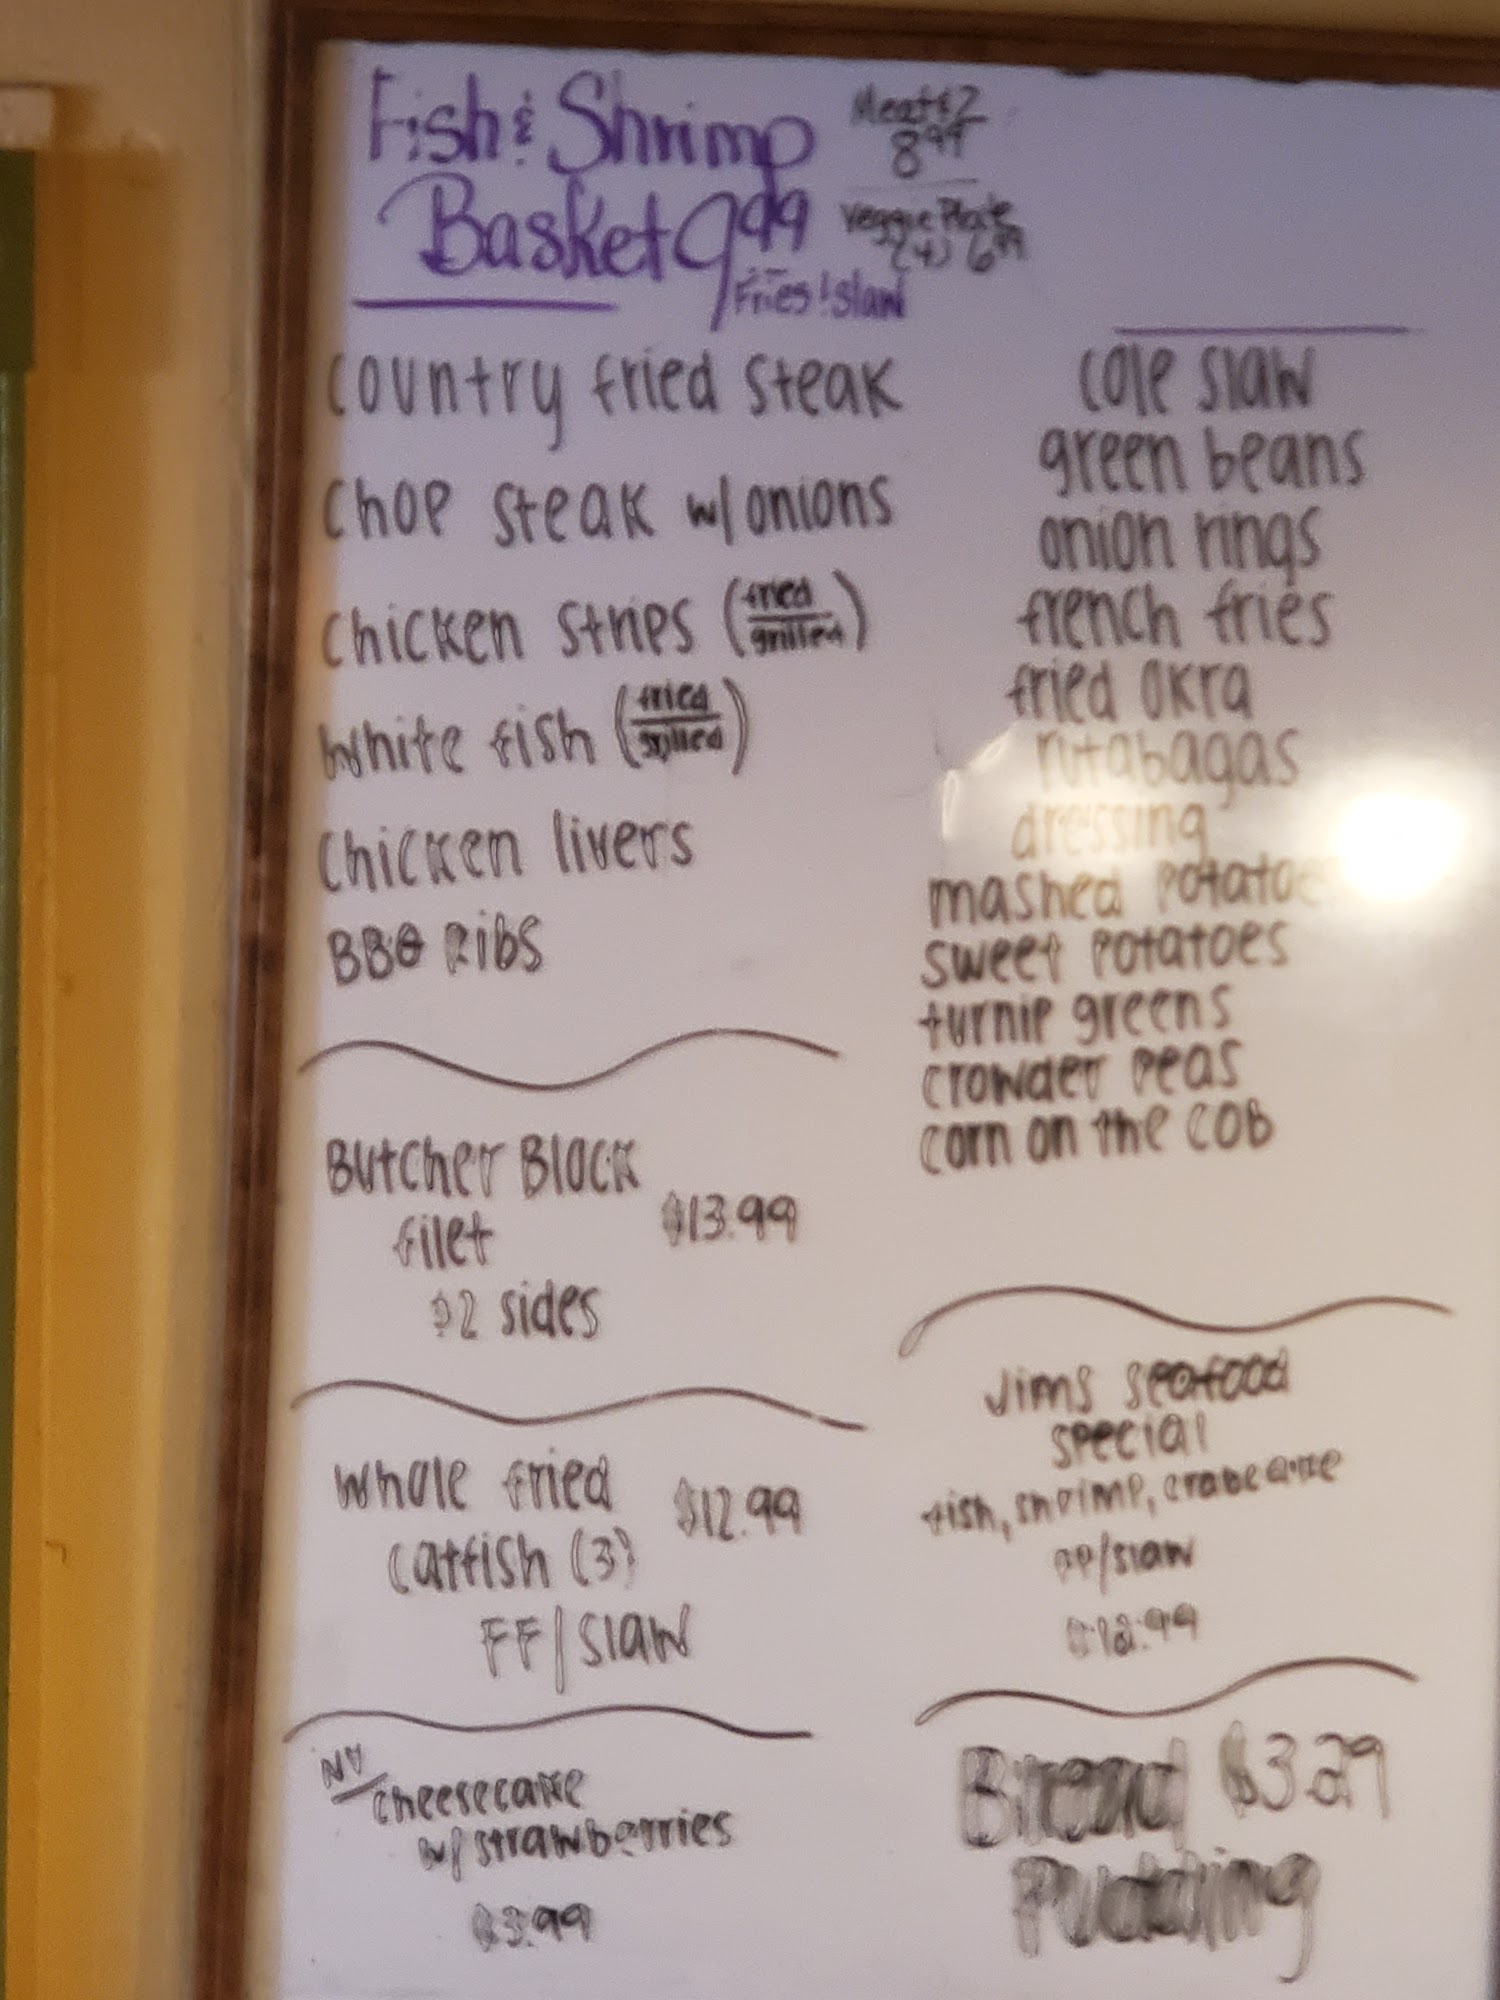 Fish & Shrimp
Basket 9.99
Fries & Slaw
Meat & 2
8.99
Veggie Plate
(4) 6.99
Country fried steak
Chop steak w/onions
Chicken strips (fried/grilled)
White fish (fried/grilled)
Chicken livers
BBQ Ribs
Butcher Block
filet $13.99
& 2 sides
Whole fried $12.99
catfish (3)
FF/slaw
NY
cheesecake
w/strawberries
$3.99
cole slaw
green beans
onion rings
french fries
fried okra
rutabagas
dressing
mashed potatoes
sweet potatoes
turnip greens
crowder peas
corn on the cob
Jims seafood
special
fish, shrimp, crabcake
FF/slaw
Bread $3.29
Pudding